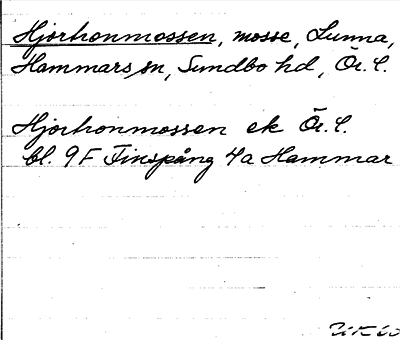 Hjorhonmossen, mosse, Lunna,
Hammars sn, Sundbo hd, Ör. l.
Hjorhonmossen ek Ör. l.
bl. 9F Finspång 4a Hammar